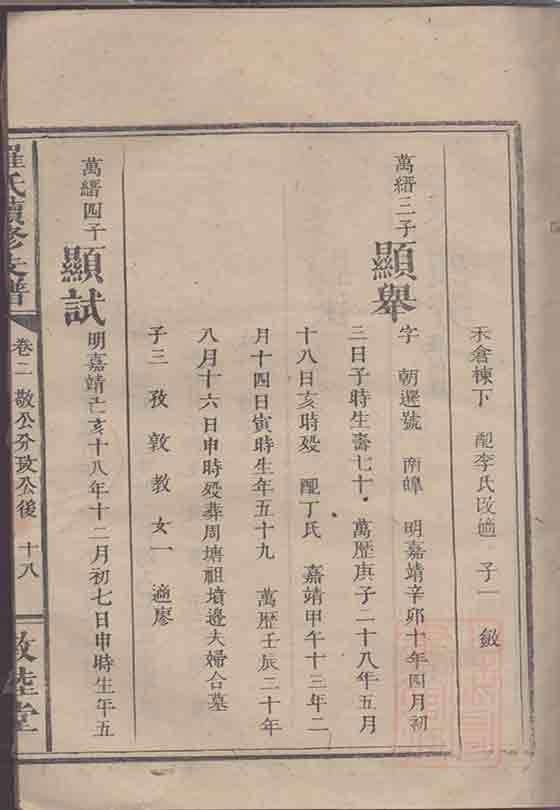 禾倉棟下 配李氏改適 子一 敏
萬縉三子 顯舉
字 朝選號 南皥 明嘉靖辛卯十年四月初
三日子時生壽七十 萬歷庚子二十八年五月
十八日亥時歿 配丁氏 嘉靖甲午十三年二
月十四日寅時生年五十九 萬歷壬辰二十年
八月十六日申時歿葬周塘祖墳邊夫婦合墓
子三 孜 敦 教 女一 適廖
萬縉四子 顯試 明嘉靖己亥十八年十二月初七日申時生年五
羅氏續修支譜 卷二 敬公分攷公後 十八 敦睦堂